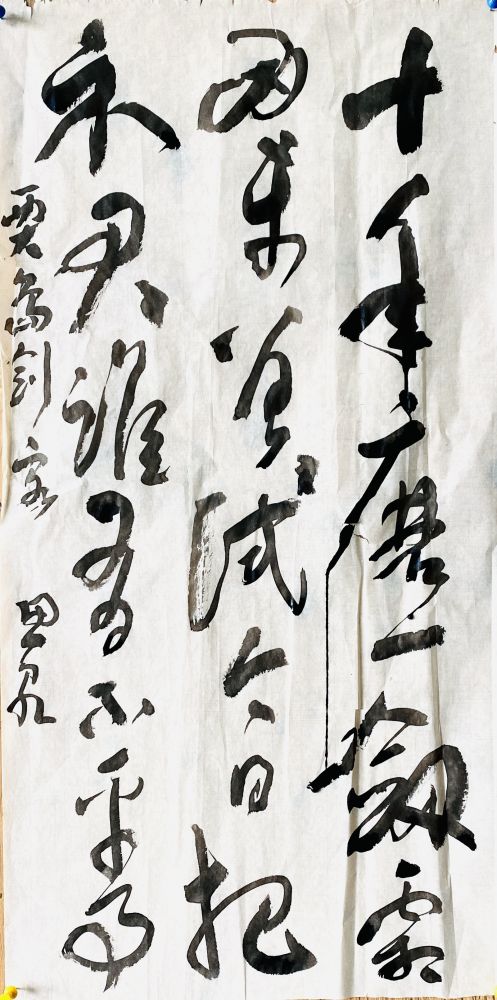 十年磨一劍霜
刃未曾試今日把
示君誰為不平事
賈島劍客